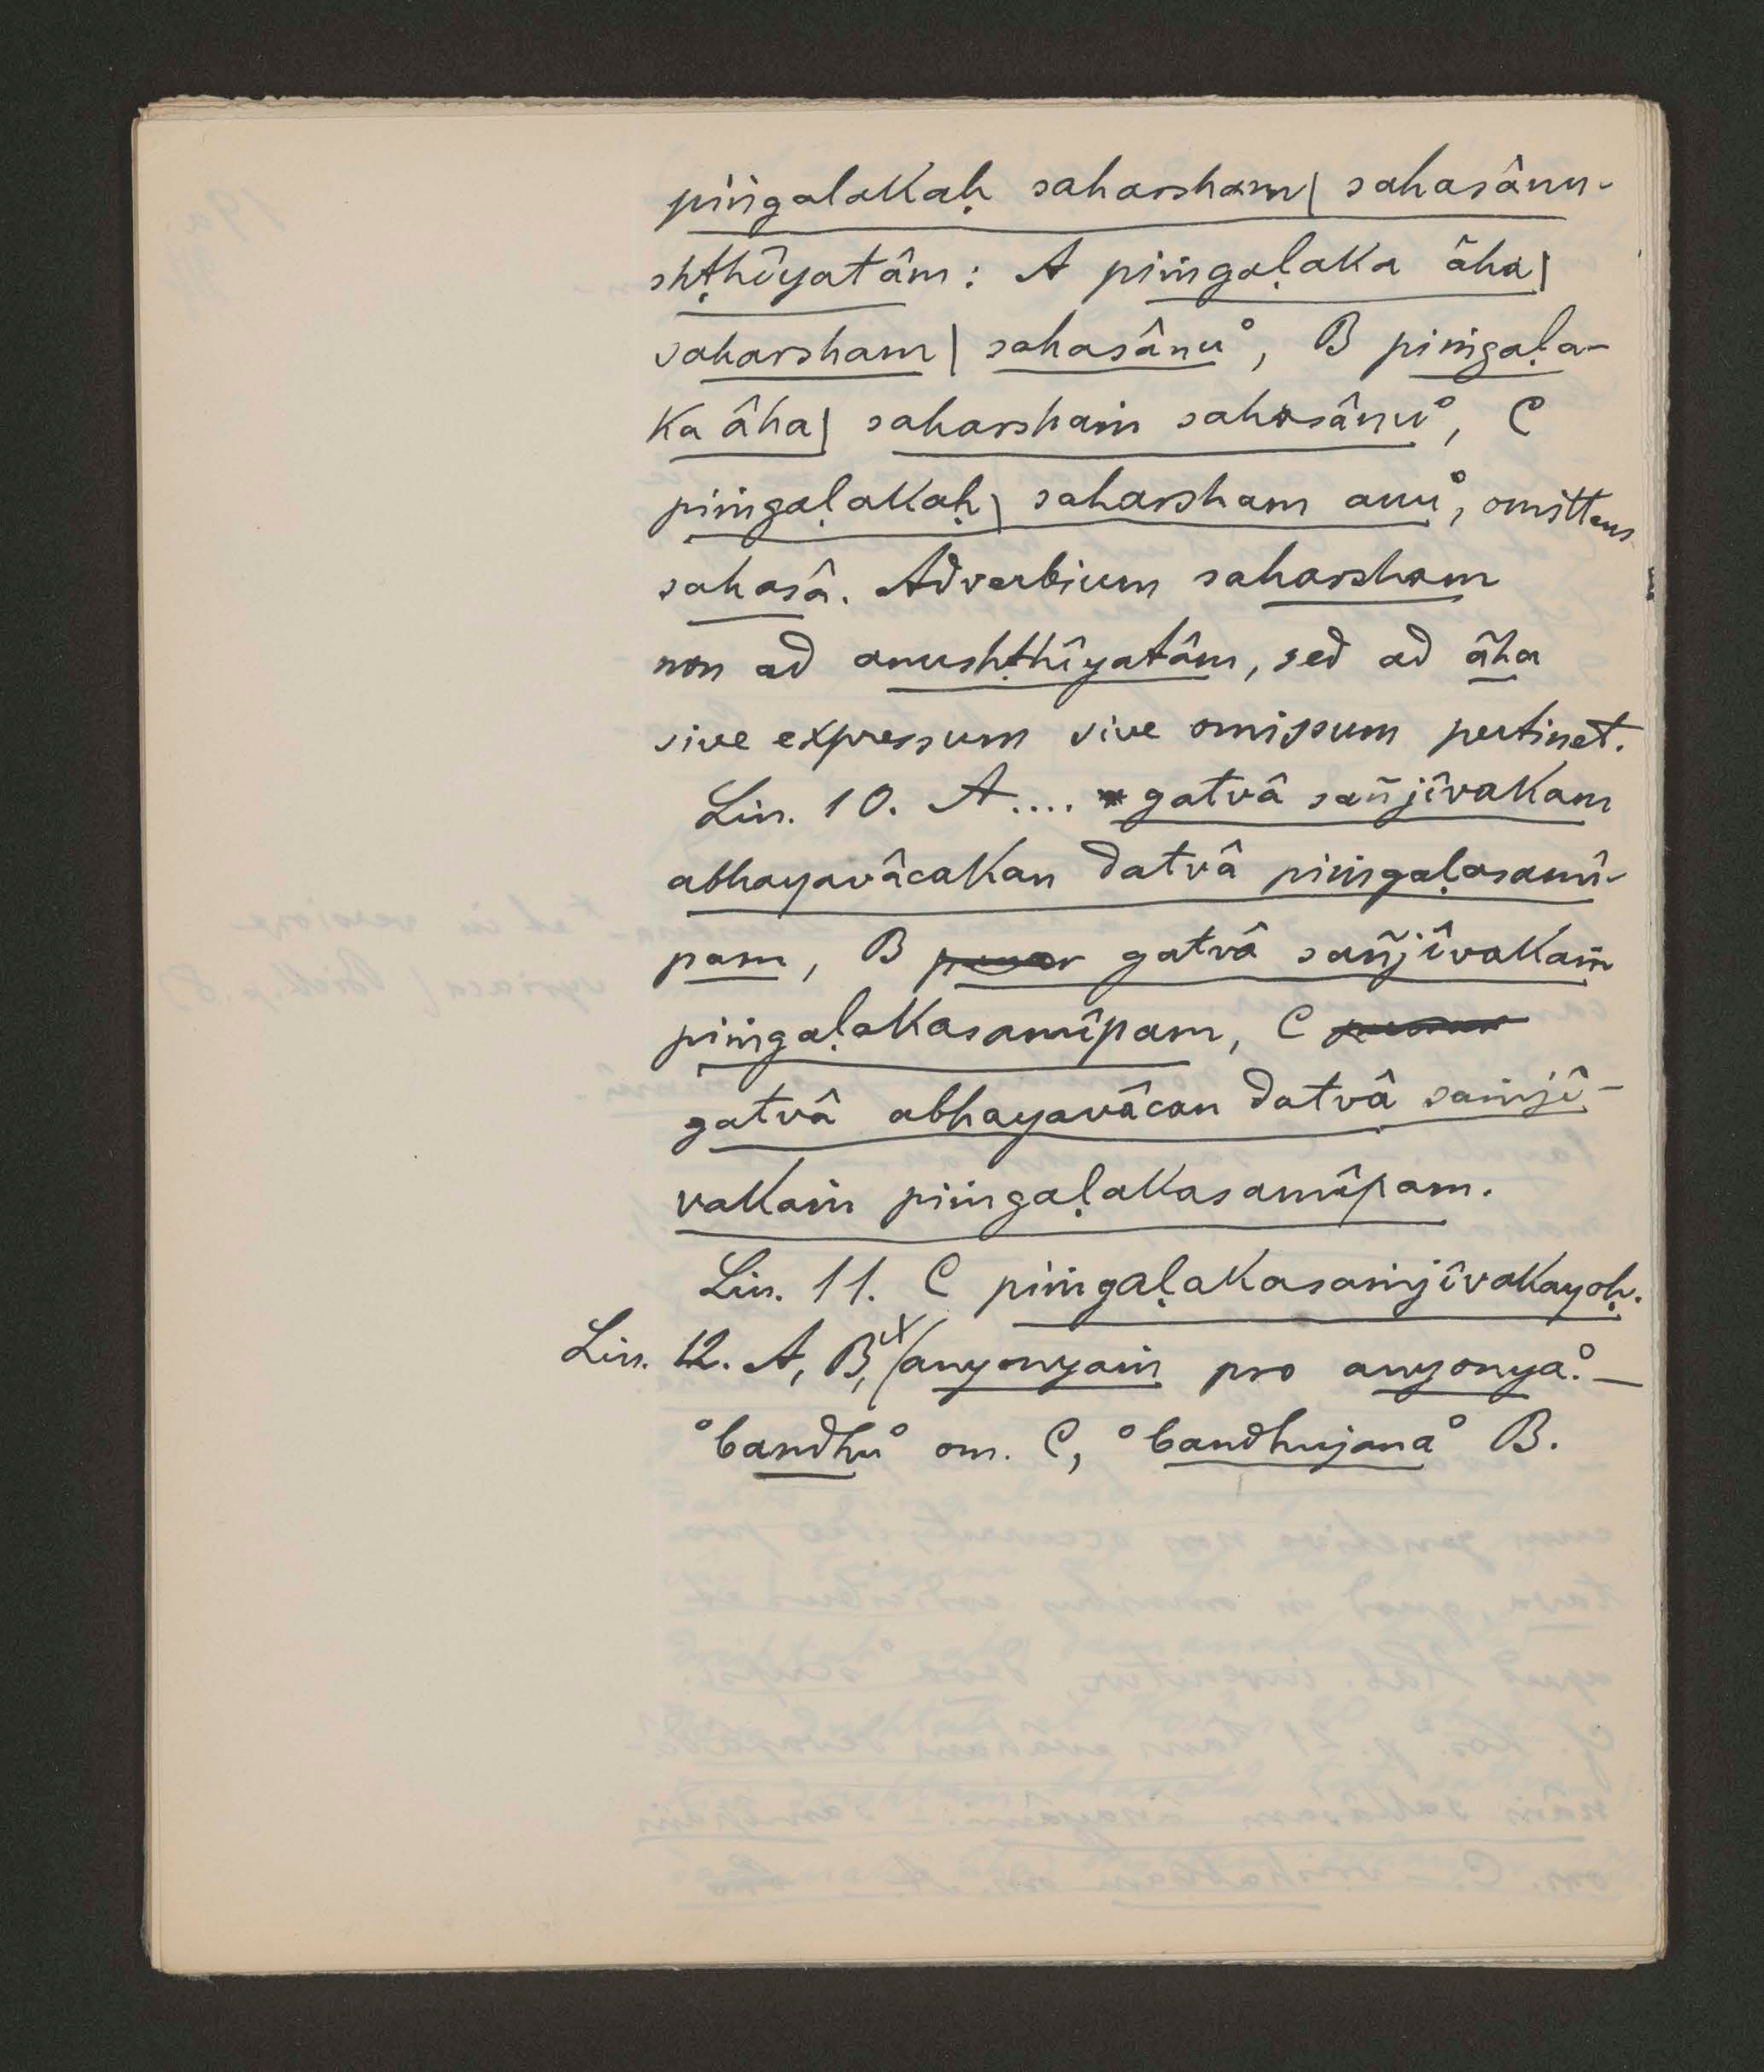 piṅgalakaḥ saharsham| sahasânu-
shṭhîyatâm: A piṁgaḷaka âha|
saharsham| sahasânu°, B piṁgaḷa-
ka âha| saharshaṁ sahasânu°, C
piṁgaḷakaḥ| saharsham anu°, omittens
sahasâ. Adverbium saharsham
non ad anushṭhîyatâm, sed ad âha
sive expressum sive omissum pertinet.
Lin. 10. A.... gatvâ sañjîvakam
abhayavâcakan datvâ piṁgaḷasamî-
pam, B gatvâ sañjîvakaṁ
piṁgaḷakasamîpam, C
gatvâ abhayavâcan datvâ saṁjî-
vakaṁ piṁgaḷakasamîpam.
Lin. 11. C piṁgaḷakasaṁjîvakayoḥ.
Lin. 12. A, B, anyonyaṁ pro anyonya°. —
°bandhu° om. C, °bandhujana° B.